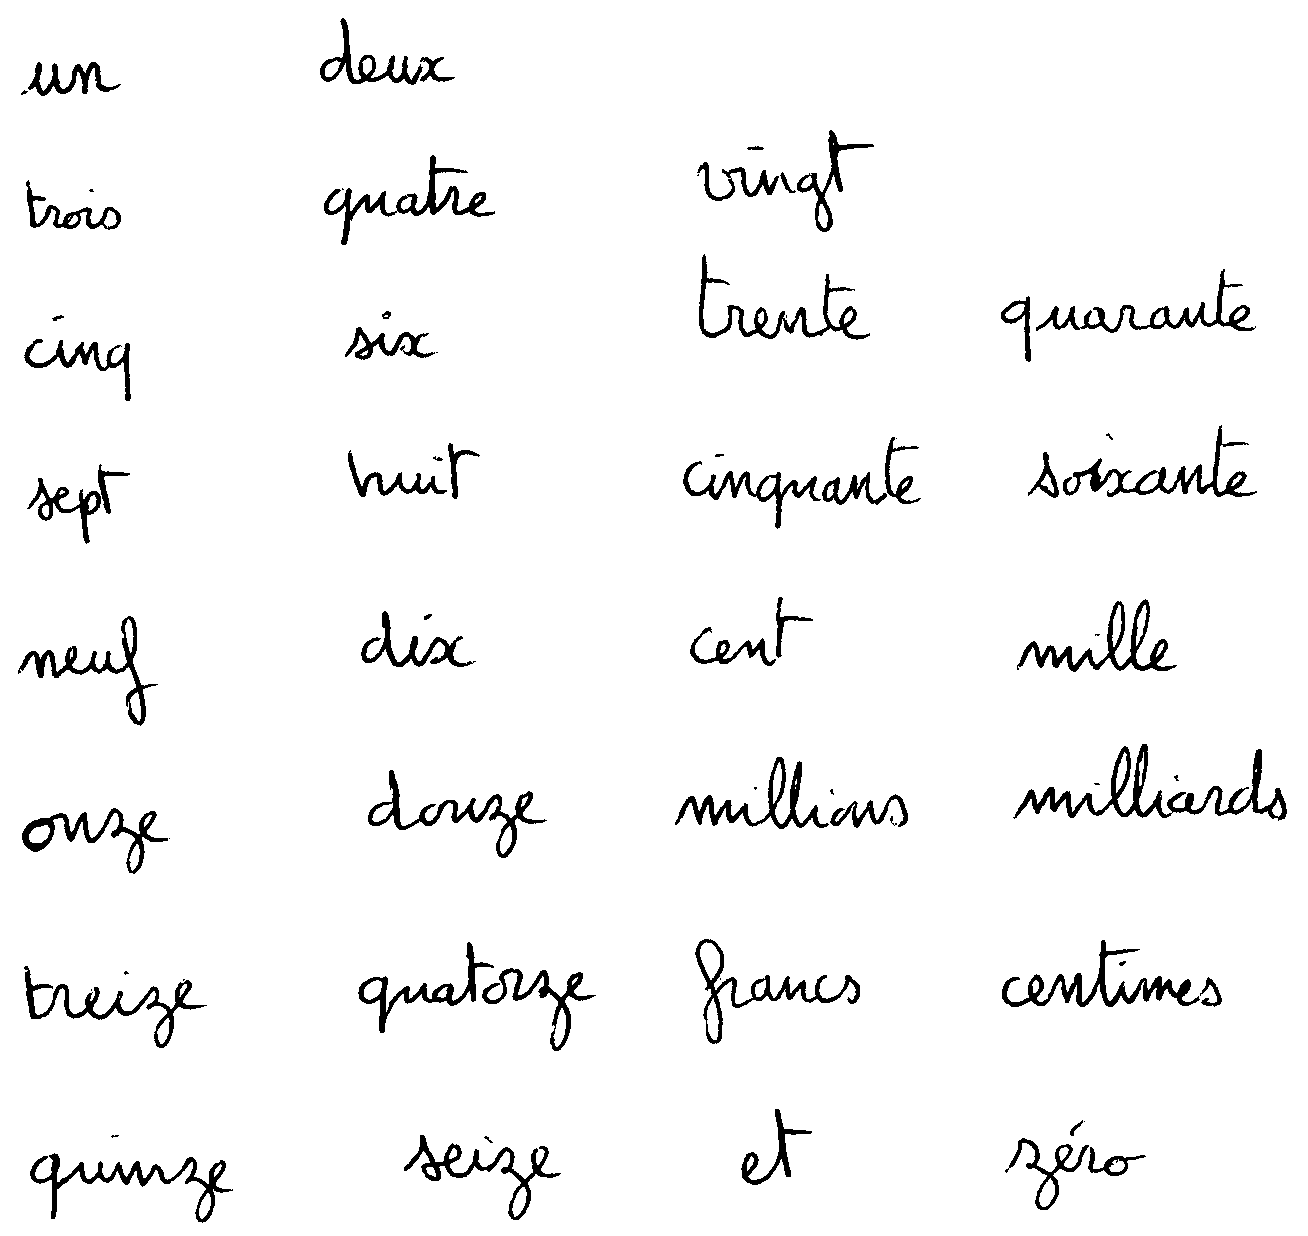 un deux
trois quatre vingt
cinq six trente quarante
sept huit cinquante soixante
neuf dix cent mille
onze douze millions milliards
treize quatorze francs centimes
quinze seize et zéro